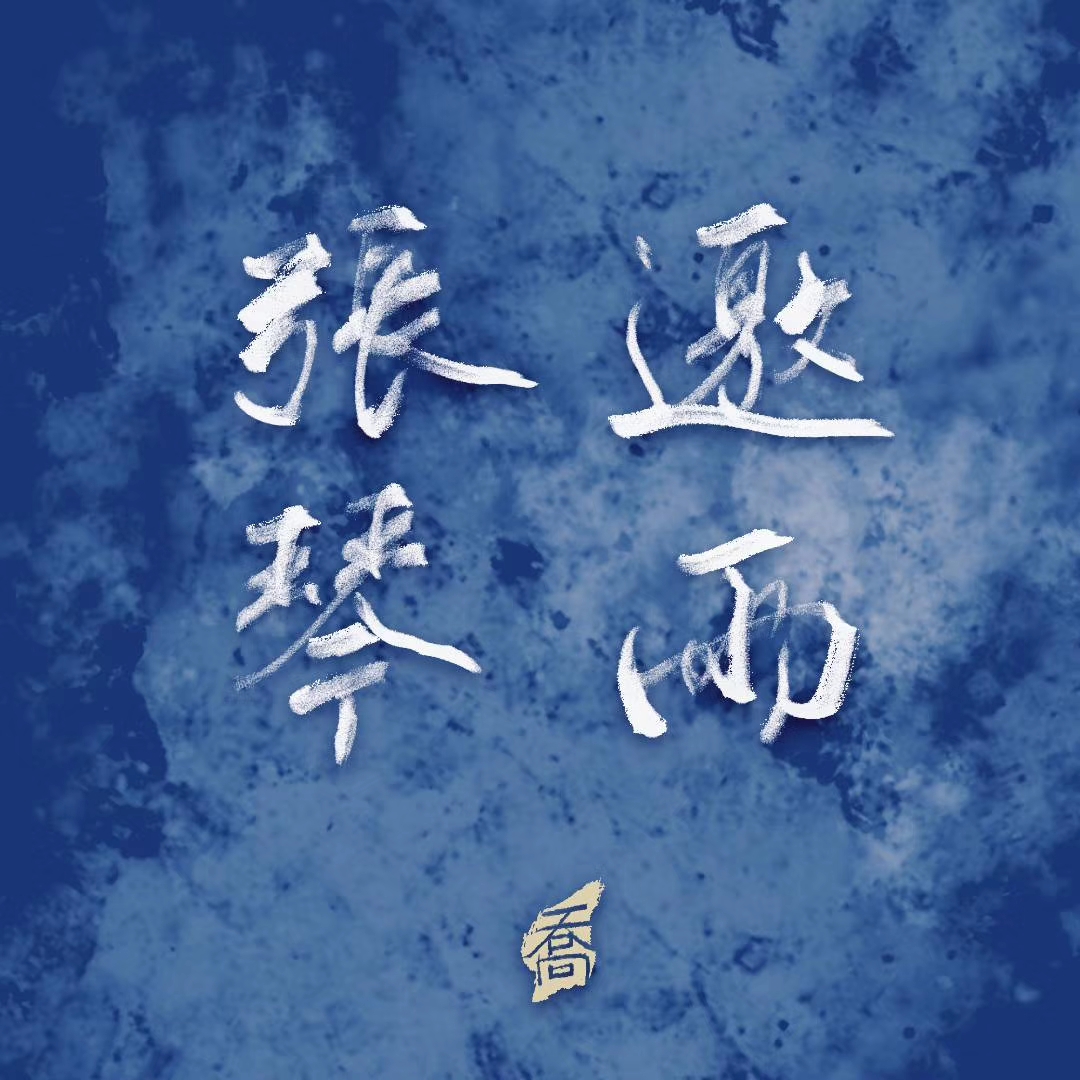 邀雨
張琴
喬